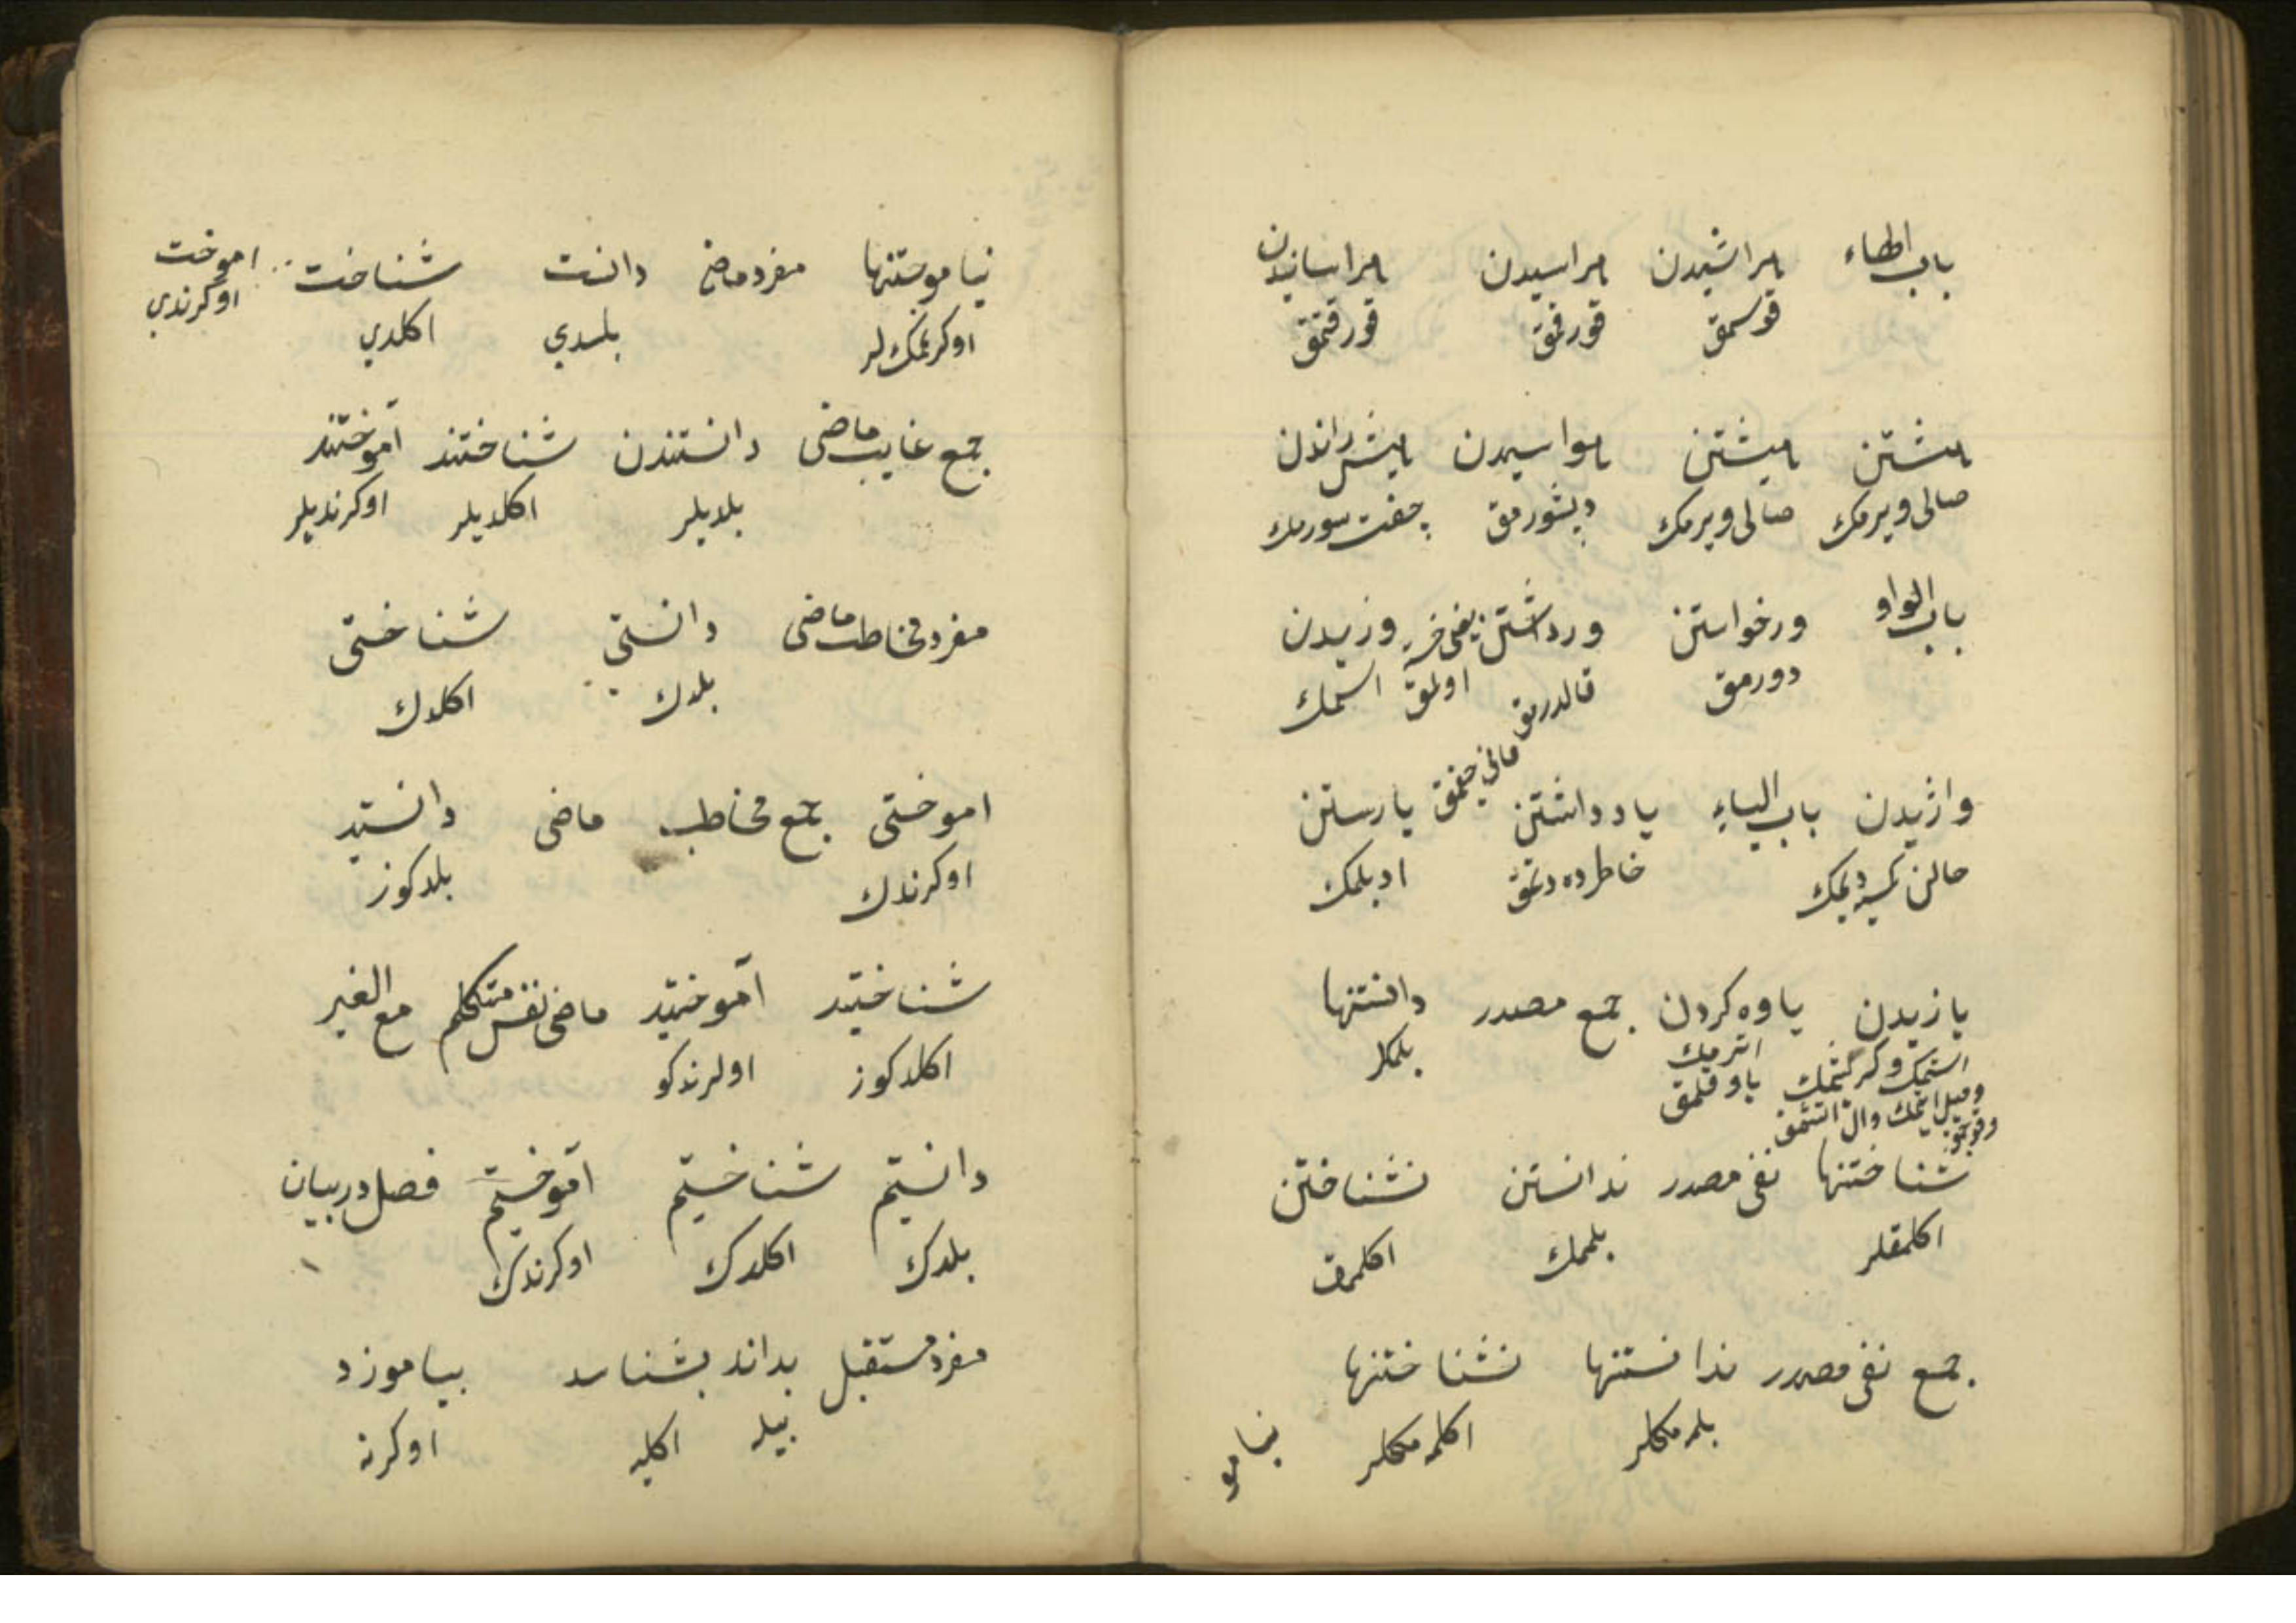 باب الهاء هراشیدن هراسیدن هراسانیدن
قوسمق قورقمق قورقتمق
هشتن هیشتن هواسیدن هیش راندن
صالی ویرمك صالی ویرمك دیشورمق جفت سورمك
باب الواو ورخواستن ورداشتن وزیدن
دورمق قالدرمق اولمق اسمك
واژیدن باب الیاء یاد داشتن یارستن
خاطرده دتمق ادبلمك
یازیدن یاوه کردن جمع مصدر دانستنها
اترمك بلمكلر
یاوقلمق
شناختنها نفی مصدر ندانستن نشناختن
اكلمقلر بلممك اكلممق
جمع نفی مصدر ندانستنها نشناختنها
بلمه مكلر اكلمه مكلر
نیامو
نیاموختنها مفرد ماضی دانست شناخت اموخت
اوكرنمك لر بلدی اكلدی اوكرندی
جمع غایب ماضی دانستندن شناختند آموختند
بلدیلر اكلدیلر اوكرندیلر
مفرد مخاطب ماضی دانستی شناختی
بلدك اكلدك
اموختی جمع مخاطب ماضی دانستید
اوكرندك بلدكوز
شناختید آموختید ماضی نفس متكلم مع الغیر
اكلدكوز اولرندكو
دانستیم شناختیم آموختیم فصل در بیان
بلدك اكلدك اوكرندك
مفرد مستقبل بداند بشناسد بیاموزد
بیله اكلیه اوكرنه